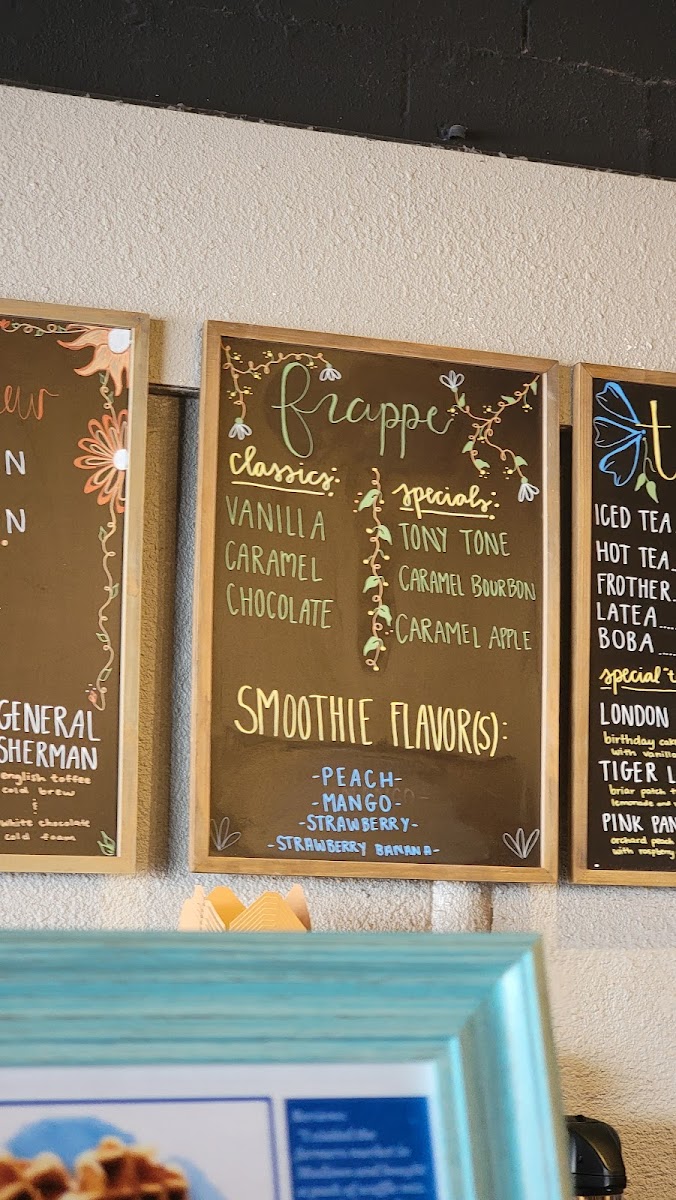 ew
N
N
GENERAL
SHERMAN
english toffee
cold brew
&
white chocolate
cold foam
frappe
classics:
VANILLA
CARAMEL
CHOCOLATE
specials:
TONY TONE
CARAMEL BOURBON
CARAMEL APPLE
SMOOTHIE FLAVOR(S):
-PEACH-
-MANGO-
-STRAWBERRY-
-STRAWBERRY BANANA-
t
ICED TEA
HOT TEA..
FROTHER..
LATEA....
BOBA ....
special "t
LONDON
birthday cak
with vanill
TIGER L
briar patch t
lemonade and
PINK PAN
orchard peach
with raspberry